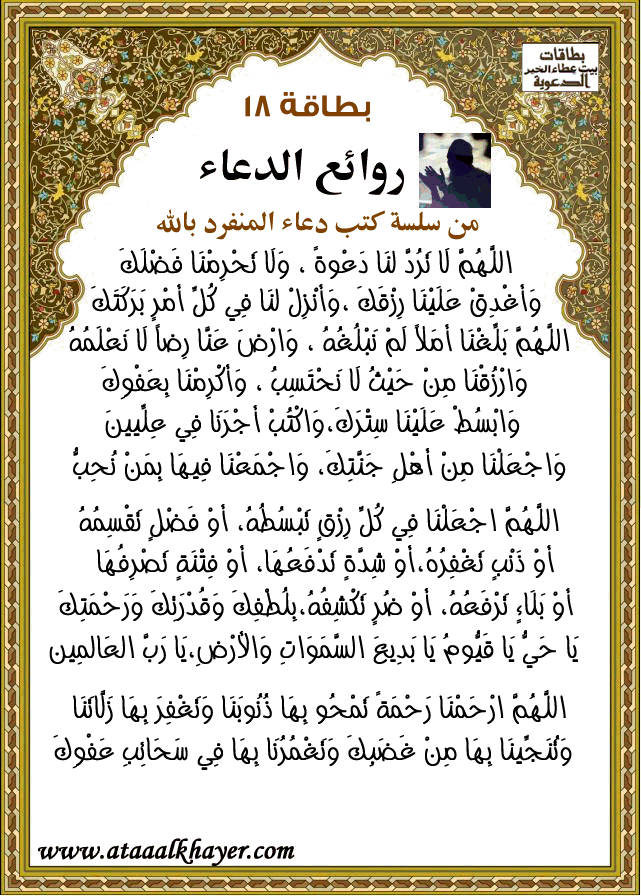 بطاقات
بيت عطاء الخير
الدعوية
بطاقة ١٨
روائع الدعاء
من سلسة كتب دعاء المنفرد بالله
اللَّهُمَّ لَا تَرُدَّ لنَا دَعْوةً ، وَلَا تَحْرِمْنَا فَضْلَكَ
وَأغْدِقْ عَلَيْنَا رِزْقَكَ ،وَأنْزِلْ لنَا فِي كُلِّ أمْرٍ بَرَكَتَكَ
اللَّهُمَّ بَلِّغْنَا أمَلاً لَمْ نَبْلُغُهُ ، وَارْضَ عَنَّا رِضاً لَا نَعْلَمُهُ
وَارْزُقْنَا مِنْ حَيْثُ لَا نَحْتَسِبُ ، وَأكْرِمْنَا بِعَفْوِكَ
وَابْسُطْ عَلَيْنَا سِتْرَكَ،وَاكْتُبْ أجْرَنَا فِي عِلِّيينَ
وَاجْعَلْنَا مِنْ أهْلِ جَنَّتِكَ، وَاجْمَعْنَا فِيهَا بِمَنْ نُحِبُّ
اللَّهُمَّ اجْعَلْنَا فِي كُلِّ رِزْقٍ تَبْسُطُهُ، أوْ فَضْلٍ تَقْسِمُهُ
أوْ ذَنْبٍ تَغْفِرُهُ،أوْ شِدَّةٍ تَدْفَعُهَا، أوْ فِتْنَةٍ تَصْرِفُهَا
أوْ بَلَاءٍ تَرْفَعُهُ، أوْ ضُرٍ تَكْشِفُهُ،بِلُطْفِكَ وَقُدْرَتِكَ وَرَحْمَتِكَ
يَا حَيُّ يَا قَيُّومُ يَا بَدِيعَ السَّمَوَاتِ وَالأرْضِ،يَا رَبَّ العَالمِين
اللَّهُمَّ ارْحَمْنَا رَحْمَةً تَمْحُو بِهَا ذُنُوبَنَا وَتَغْفِرَ بِهَا زَلَّاتَنَا
وَتُنَجِّينَا بِهَا مِنْ غَضَبِكَ وَتَغْمُرُنَا بِهَا فِي سَحَائِبِ عَفْوِكَ
www.ataaalkhayer.com